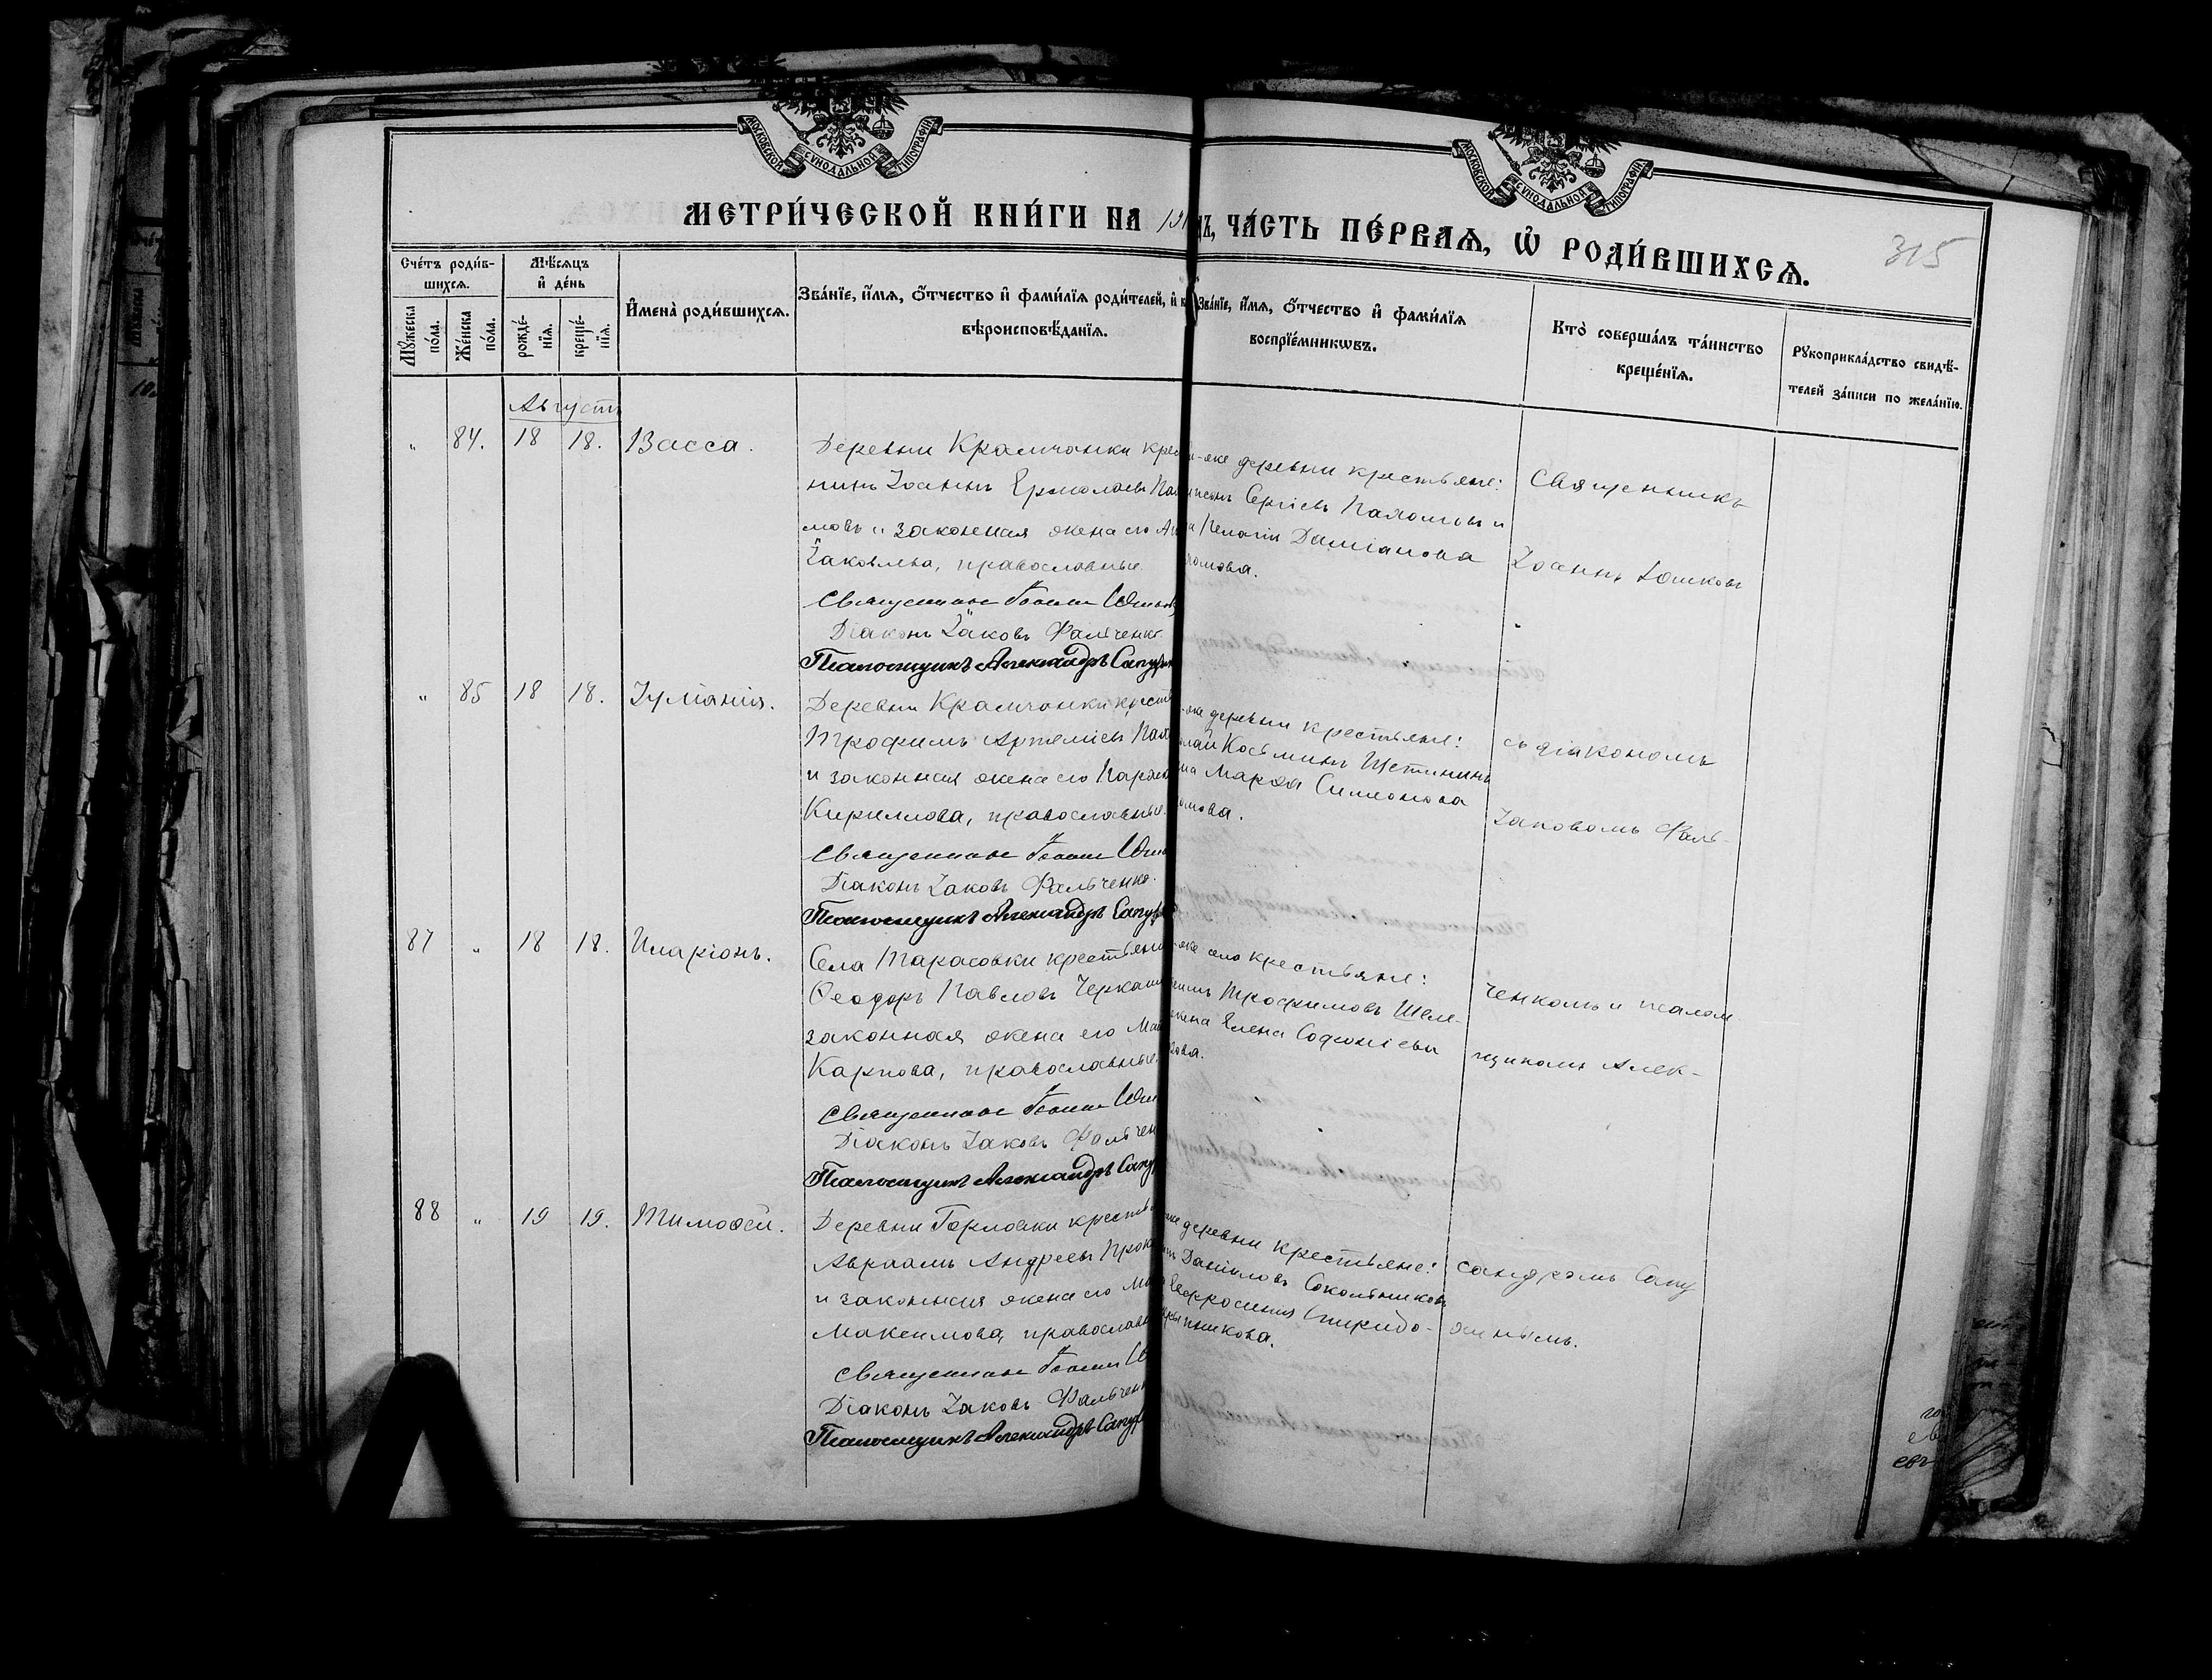 МОСКОВСКОЙ СѴНОДАЛЬНОЙ ТИПОГРАФІИ
МОСКОВСКОЙ СѴНОДАЛЬНОЙ ТИПОГРАФІИ
МЕТРИ́ЧЕСКОЙ КНИ́ГИ НА 191
ЧА́СТЬ ПЕ́РВАѦ, Ѡ РОДИ́ВШИХСѦ.
315
Сче́тъ роди́в-
шихсѧ.
Мѣ́сѧцъ
и҆ де́нь
Мꙋ́жеска по́ла.
Же́нска по́ла.
рожде́-нїѧ.
креще́-нїѧ.
И҆мена̀ роди́вшихсѧ.
Зва́нїе, и҆́мѧ, ѻ҆́тчество и҆ фами́лїѧ роди́телей, и҆
вѣроисповѣ́данїѧ.
Зва́нїе, и҆́мѧ, ѻ҆́тчество и҆ фами́лїѧ
воспрїе́мникѡвъ.
Кто̀ соверша́лъ та́инство
креще́нїѧ.
Рꙋкоприкла́дство свидѣ́-
телей за́писи по жела́нїю.
Августъ
" 84. 18 18. Васса.
Деревни Крамчанки кре
нинъ Іоаннъ Ермолаевъ Пах
мовъ и законная жена его Ан
Іаковлева, православные
Священникъ Іоаннъ Юшков
Діаконъ Іаковъ Фальченко.
Псаломщикъ Александръ Сапу
-же деревни крестьяне:
Сергіевъ Пахомовъ и
Пелагія Даміанова
хомова.
Священникъ
Іоаннъ Юшковъ
" 85 18 18. Іуліанія.
Деревни Крамчанки крест
Трофимъ Артемьевъ Пах
и законная жена его Параск
Кириллова, православные.
Священникъ Іоаннъ Юш
Діаконъ Іаковъ Фальченко.
Псаломщикъ Александръ Сапу
-же деревни крестьяне:
лай Косьминъ Щетининъ
на Марѳа Симеонова
омова.
съ діакономъ
Іаковомъ Фаль-
87 " 18 18. Иларіонъ.
Села Тарасовки крестьяни
Ѳеодоръ Павловъ Черкаш
законная жена его Ма
Карпова, православные.
Священникъ Іоаннъ Юш
Діаконъ Іаковъ Фальчен
Псаломщикъ Александръ Сапу
-же села крестьяне:
Трофимовъ Шеле-
жена Елена Софоніева
хова.
ченкомъ и псалом-
щикомъ Алек-
88 " 19 19. Тимоѳей.
Деревни Горловки крестья
Авраамъ Андреевъ Прок
и законная жена его Ма
Максимова, православн
Священникъ Іоаннъ Ю
Діаконъ Іаковъ Фальчен
Псаломщикъ Александръ Сапу
же деревни крестьяне:
Даніиловъ Сокольниковъ
Евфросинія Спиридо-
пникова.
сандромъ Сапу
жинымъ.